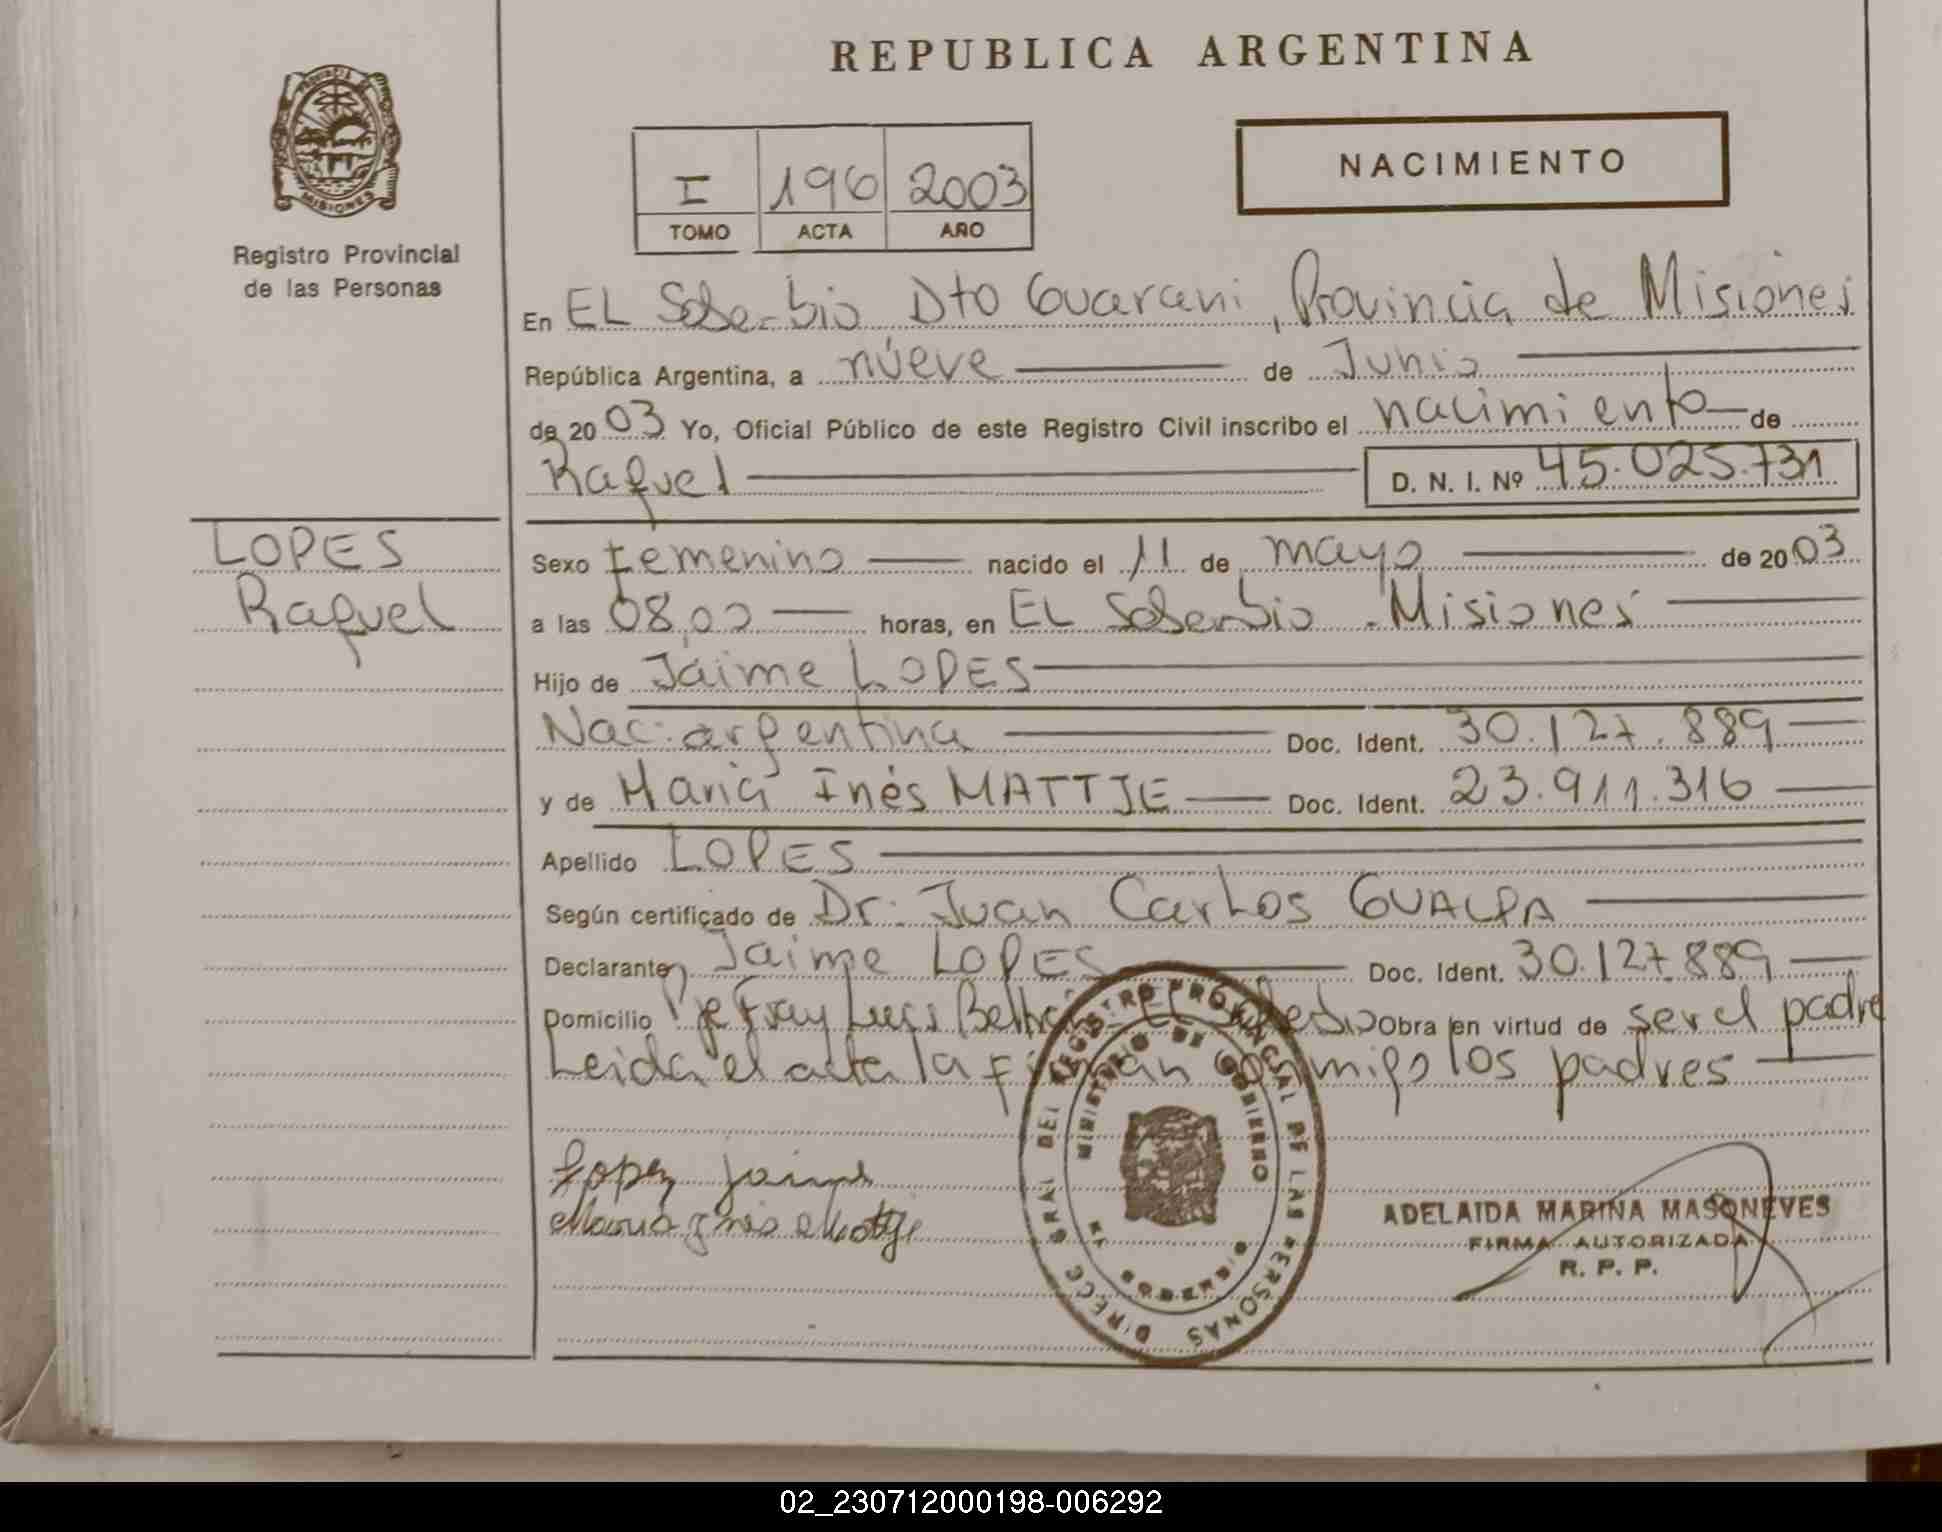 REPUBLICA ARGENTINA
PROVINCIA DE
MISIONES
Registro Provincial
de las Personas
I 196 2003
TOMO ACTA AÑO
NACIMIENTO
En EL Soberbio Dto Guarani, Provincia de Misiones
República Argentina, a núeve de Junio
de 2003 Yo, Oficial Público de este Registro Civil inscribo el nacimiento de
Raquel D. N. I. Nº 45.025.731
LOPES
Raquel
Sexo Femenino nacido el 11 de mayo de 2003
a las 08,00 horas, en EL Soberbio - Misiones
Hijo de Jaime LOPES
Nac. argentina Doc. Ident. 30.127.889
y de Maria Inés MATTJE Doc. Ident. 23.911.316
Apellido LOPES
Según certificado de Dr. Juan Carlos GUALPA
Declarante Jaime LOPES Doc. Ident. 30.127.889
Domicilio Pje Fray Luis Beltrán El Soberbio Obra en virtud de ser el padre
Leida el acta la firman conmigo los padres
Lopez Jaime
Maria Ines Mattje
DIRECC GRAL DEL REGISTRO PROVINCIAL DE LAS PERSONAS
MINISTERIO DE GOBIERNO
MISIONES
ADELAIDA MARINA MASONEVES
FIRMA AUTORIZADA
R. P. P.
02_230712000198-006292